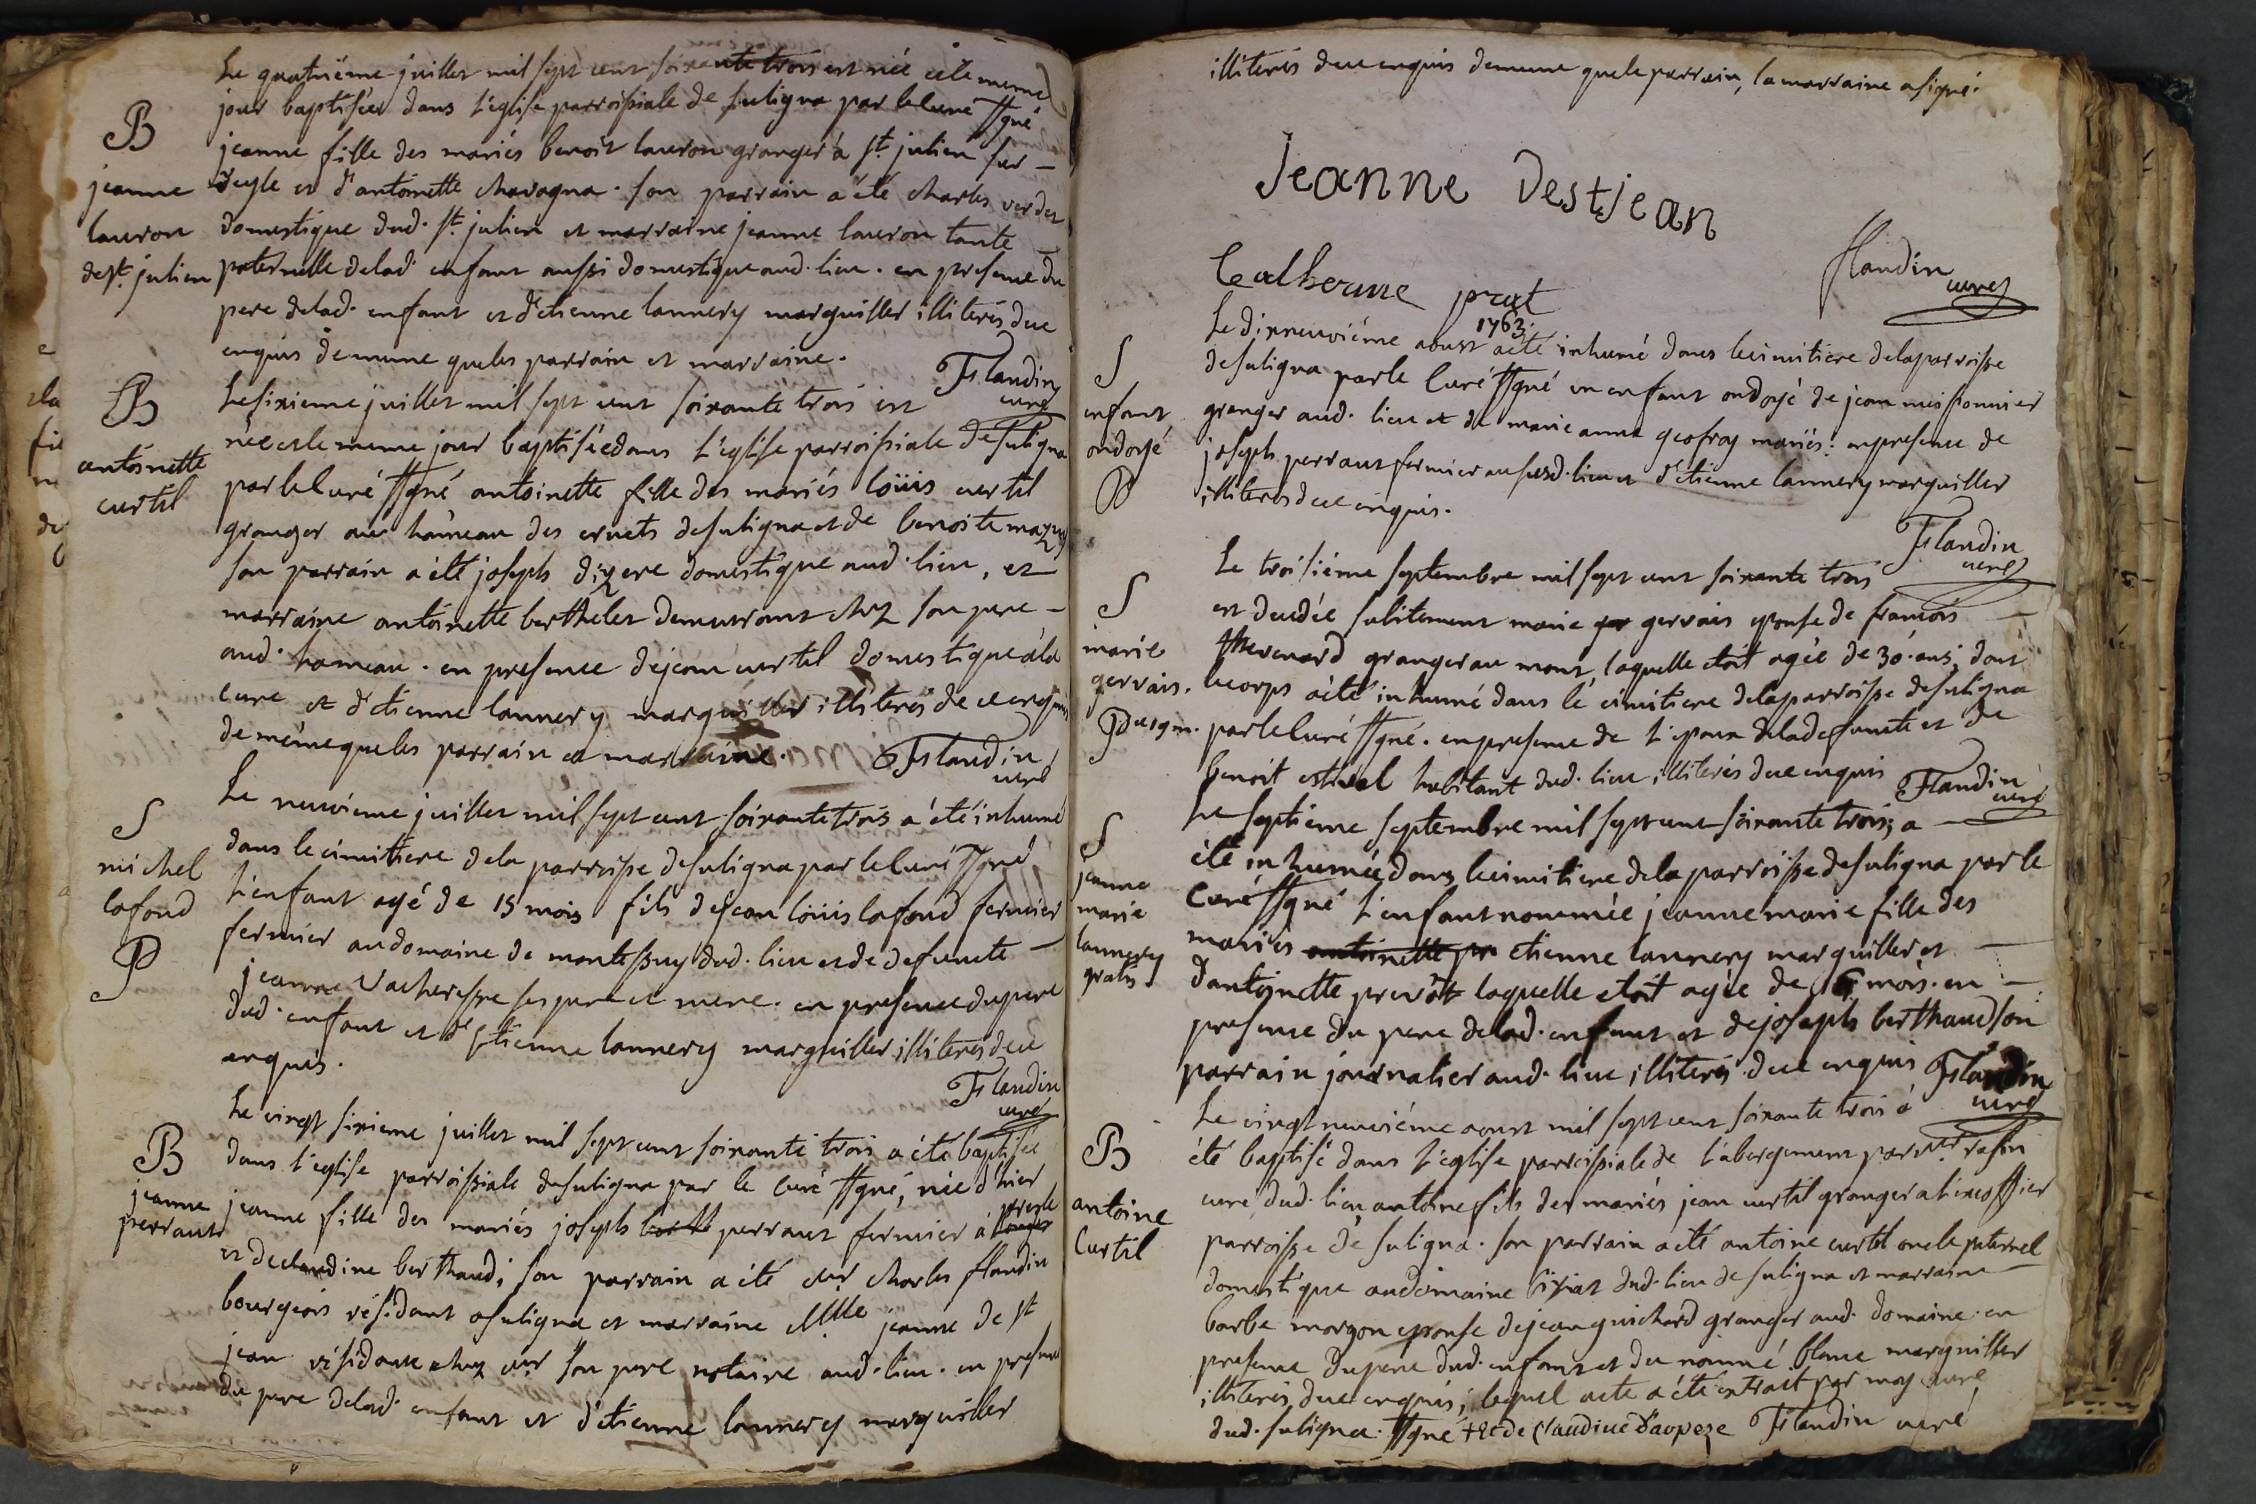 Le quatriéme juillet mil sept cent soixante trois est née et le meme
jour baptisée dans l'église parroissiale de suligna par le curé ssgné
B
jeanne
lauron
de st. julien
jeanne fille des mariés benoit lauron granger à st. julien sur
veyle et d'antoinette chavagna. son parrain a été charles verdet
domestique dud. st. julien et marraine jeanne lauron tante
paternelle delad. enfant aussi domestique aud. lieu. en presence du
pere delad. enfant et d'etienne lannery marguiller illiterés de ce
enquis de meme que les parrain et marraine.
Flandin
curé
B
antoinette
curtil
Le sixieme juillet mil sept cent soixante trois est
née et le meme jour baptisée dans l'église parroissiale de suligna
par le curé ssgné antoinette fille des mariés löuis curtil
granger au hameau des cruets de suligna et de benoite mazuy
son parrain a été joseph dizere domestique aud. lieu, et
marraine antoinette berthelet demeurant chez son pere
aud. hameau. en presence de jean curtil domestique à la
cure et d'etienne lannery marguiller illiterés de ce enquis
de même que les parrain et marraine.
Flandin
curé
S
michel
lafond
P
Le neuvieme juillet mil sept cent soixante trois a été inhumé
dans le cimitiere dela parroisse de suligna par le curé ssgné
l'enfant agé de 15 mois fils de jean löuis lafond fermier
fermier au domaine de montessuy dud. lieu et de defuncte
jeanne vacheresse ses pere et mere. en presence du pere
dud. enfant et d'etienne lannery marguiller illiterés de ce
enquis.
Flandin
curé
B
jeanne
perraut
Le vingt sixieme juillet mil sept cent soixante trois a été baptisée
dans l'eglise parroissiale de suligna par le curé ssgné, née d'hier
jeanne fille des mariés joseph perraut fermier à
et de claudine berthaud; son parrain a été sr charles flandin
bourgeois résidant a suligna et marraine Mlle jeanne de st
jean résidante chez sr son pere notaire aud. lieu. en presence
du pere delad. enfant et d'etienne lannery marguiller
illiterés de ce enquis de meme que le parrain, la marraine a signé.
Jeanne Destjean
Catherine prat
flandin
curé
S
enfant
ondoyé
P
Le dixneuviéme aoust 1763. a été inhumé dans le cimitiere dela parroisse
de suligna par le curé ssgné un enfant ondoyé de jean meissonnier
granger aud. lieu et de marie anne geofray mariés: en presence de
joseph perraut fermier au susd. lieu et d'etienne lannery marguiller
illiterés de ce enquis.
Flandin
curé
S
marie
gervais.
P
Le troisiéme septembre mil sept cent soixante trois
est decedée subitement marie gervais epouse de francois
thevenard granger au mont, laquelle etoit agée de 30. ans, dont
le corps a été inhumé dans le cimitiere dela parroisse de suligna
par le curé ssgné. en presence de l'epoux delad defuncte et de
benoit estivel habitant dud. lieu illiterés de ce enquis
Flandin
curé
S
jeanne
marie
lannery
gratis
Le septiéme septembre mil sept cent soixante trois, a
été inhumée dans le cimitiere dela parroisse de suligna par le
curé ssgné l'enfant nommée jeanne marie fille des
mariés antoinette pr etienne lannery marguiller et
d'antoinette prevôt laquelle etoit agée de 6 mois. en
presence du pere delad. enfant et de joseph berthaud son
parrain journalier aud. lieu illiterés de ce enquis
Flandin
curé
B
antoine
Curtil
Le vingt neuviéme aoust mil sept cent soixante trois a
été baptisé dans l'eglise parroissiale de l'abergement par mr rafin
curé dud. lieu antoine fils des mariés jean curtil granger
parroisse de suligna. son parrain a été antoine curtil oncle paternel
domestique au domaine dud. lieu de suligna et marraine
barbe morgon epouse de jean guichard granger aud. domaine. en
presence du pere dud. enfant et du nommé blanc marguiller
illiterés de ce enquis; lequel acte a été extrait par moy curé
dud. suligna. ssgné +et de claudine daupeze Flandin curé